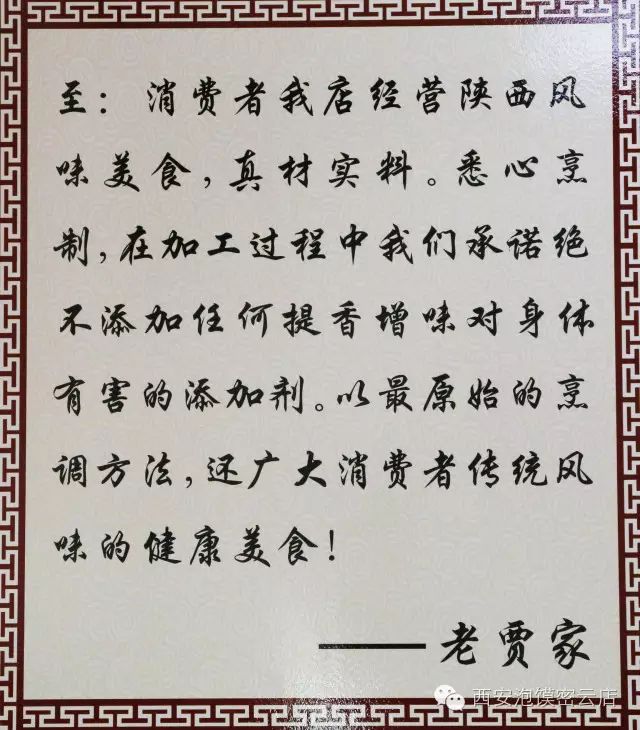 至：消费者我店经营陕西风
味美食,真材实料。悉心烹
制,在加工过程中我们承诺绝
不添加任何提香增味对身体
有害的添加剂。以最原始的烹
调方法,还广大消费者传统风
味的健康美食!
——老贾家
西安泡馍密云店